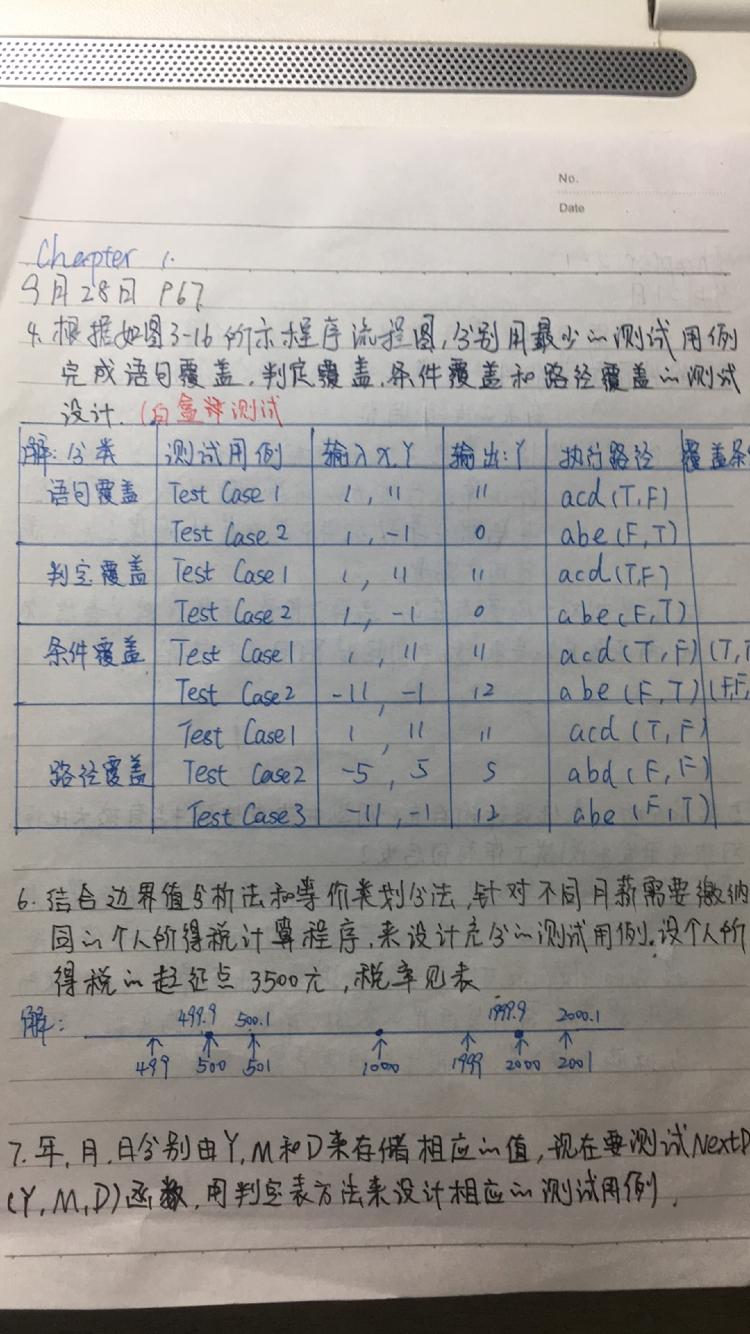 No.
Date
Chapter 1.
9月28日 P67
4. 根据如图3-16所示程序流程图,分别用最少的测试用例
完成语句覆盖,判定覆盖,条件覆盖和路径覆盖的测试
设计. (白盒测试
解: 分类 测试用例 输入X,Y 输出:Y 执行路径 覆盖条
语句覆盖 Test Case 1 1, 11 11 acd(T,F)
Test Case 2 1, -1 0 abe(F,T)
判定覆盖 Test Case1 1, 11 11 acd(T,F)
Test Case 2 1, -1 0 abe(F,T)
条件覆盖 Test Case1 1, 11 11 acd(T,F) (T,T
Test Case2 -11, -1 12 abe(F,T) (F,F,
Test Case1 1, 11 11 acd(T,F)
路径覆盖 Test Case2 -5, 5 5 abd(F,F)
Test Case3 -11,-1 12 abe(F,T)
6. 结合边界值分析法和等价类划分法,针对不同月薪需要缴纳
同的个人所得税计算程序,来设计充分的测试用例。设个人所
得税的起征点3500元,税率见表
解: 499.9 500.1 1999.9 2000.1
499 500 501 1000 1999 2000 2001
7. 年,月,日分别由Y,M和D来存储相应的值,现在要测试NextD
(Y,M,D)函数,用判定表方法来设计相应的测试用例.